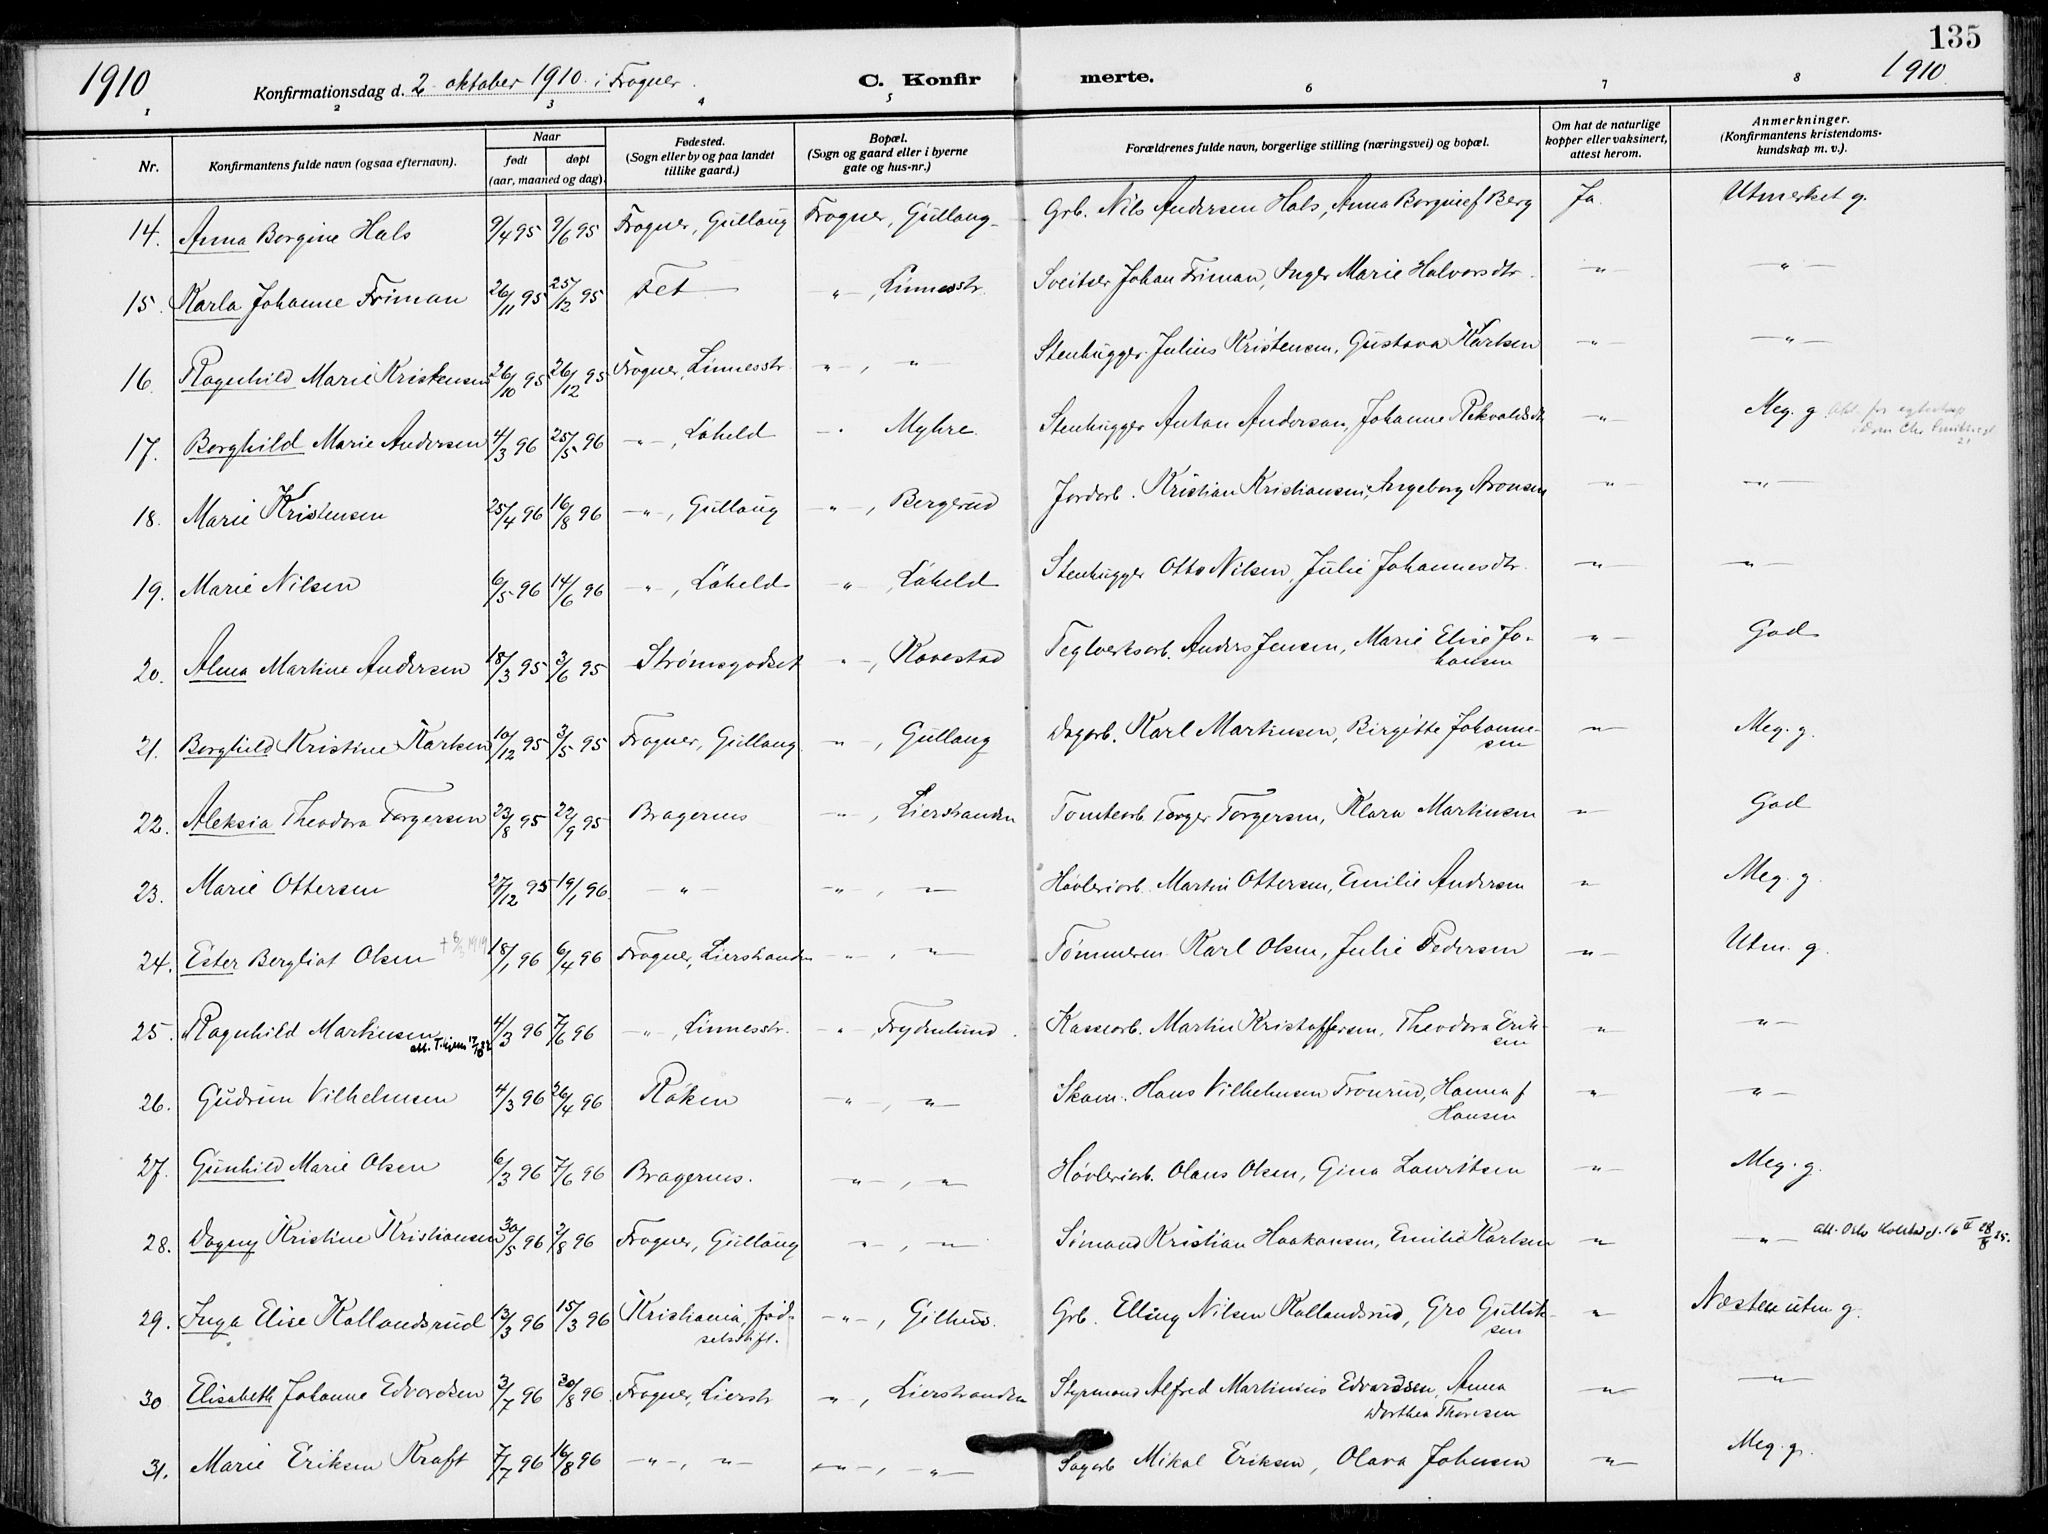 135
1910 Konfirmationsdag d. 2. oktober 1910. i Frogner. C. Konfirmerte. 1910
1 2 3 4 5 6 7 8
Nr. Konfirmantens fulde navn (ogsaa efternavn). Naar født døpt (aar, maaned og dag). Fødested. (Sogn eller by og paa landet tillike gaard.) Bopæl. (Sogn og gaard eller i byerne gate og hus-nr.) Forældrenes fulde navn, borgerlige stilling (næringsvei) og bopæl. Om hat de naturlige kopper eller vaksinert, attest herom. Anmerkninger. (Konfirmantens kristendomskundskap m. v.).
14. Anna Borgine Hals 9/4 95 9/6 95 Frogner, Gullaug Frogner, Gullaug Grb. Nils Andersen Hals, Anna Borgine f Berg Ja. Utmerket g.
15. Karla Johanne Friman 26/11 95 25/12 95 Fet -"-, Linnesstr. Sveitser Johan Friman, Inger Marie Halvorsdtr. -"- -"-
16. Ragnhild Marie Kristensen 26/10 95 26/12 95 Frogner, Linnesstr. -"-, " Stenhugger Julius Kristensen, Gustava Karlsen -"- -"-
17. Borghild Marie Andersen 4/3 96 25/5 96 -"-, Løheld -"- Myhre Stenhugger Anton Anderson, Johanne Rekvaldsdtr -"- Meg. g.
18. Marie Kristensen 25/4 96 16/8 96 -"-, Gullaug -"-, Bergerud Jordarb. Kristian Kristiansen, Ingeborg Aronsen -"- -"-
19. Marie Nilsen 6/5 96 14/6 96 -"-, Løheld -"-, Løheld Stenhugger Otto Nilsen, Julie Johannesdtr. -"- -"-
20. Alma Martine Andersen 18/3 95 3/6 95 Strømsgodset -"-, Kovestad Teglverksarb. Anders Jensen, Marie Elise Johansen -"- God
21. Borghild Kristine Karlsen 10/12 95 3/5 95 Frogner, Gullaug -"-, Gullaug Dagarb. Karl Martinsen, Birgitte Johannesen -"- Meg. g.
22. Aleksia Theodora Torgersen 23/8 95 22/9 95 Bragernes -"-, Lierstranden Tomtearb Torger Torgersen, Klara Martinsen -"- God
23. Marie Ottersen 27/12 95 19/1 96. -"- -"-, -"- Høvleriarb. Martin Ottersen, Emilie Andersen -"- Meg. g.
24. Ester Bergliot Olsen 18/1 96 6/4 96 Frogner, Lierstranden -"-, -"- Tømmerm. Karl Olsen, Julie Pedersen -"- Utm. g.
25. Ragnhild Martinsen 4/3 96 7/6 96 -"-, Linnesstr. -"- Frydenlund. Kassearb. Martin Kristoffersen, Theodora Eriksen -"- -"-
26. Gudrun Vilhelmsen 4/3 96 26/4 96 Røken -"-, -"- Skom. Hans Vilhelmsen Tronrud, Hanna f Hansen -"- -"-
27. Gunhild Marie Olsen 6/3 96 7/6 96 Bragernes. -"-, -"- Høvleriarb. Olaus Olsen, Gina Lauritsen -"- Meg. g.
28. Dagny Kristine Kristiansen 30/5 96 2/8 96 Frogner, Gullaug -"-, -"- Sømand Kristian Haakonsen, Emilie Karlsen -"- -"- att. Oslo
29. Inga Elise Kollandsrud 13/3 96 15/3 96 Kristiania, fødselsstift. -"-, Gilhus. Grb. Elling Nilsen Kollandsrud, Gro Gulliksen -"- Næsten utm g.
30 Elisabeth Johanne Edvardsen 3/7 96 30/8 96 Frogner, Lierstr -"-, Lierstranden Styrmand Alfred Martinius Edvardsen, Anna Dorthea Thoresen -"- -"-
31. Marie Eriksen Kraft 7/7 96 16/8 96 -"-, -"- -"-, -"- Sagarb Mikal Eriksen, Olava Johnsen -"- Meg. g.